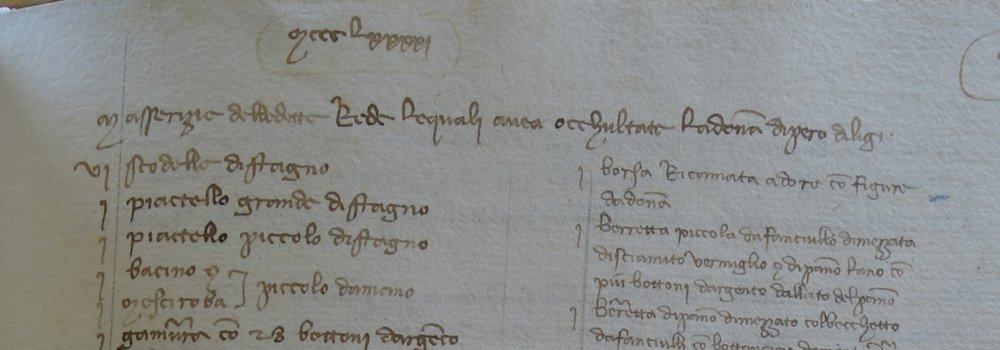 mccc lxxxxi
Masserizie delledette Rede lequali avea occhultate ladonā dipero diligi.
vi scodelle distagno
j piattello grande distagno
j piattello piccolo distagno
j bacino e
j mesciroba piccolo damano
j gamurra cō 28 bottoni dargēto
j borsa Ricamata adoro cō figure
dadonā
j Berretta piccola dafanciullo dimezzata
disciamito vermiglio e dipāno lano cō
più bottoni dargento dallato delpāno
j Berretta dipāno dimezzato colbecchetto
dafanciulli cō bottoni